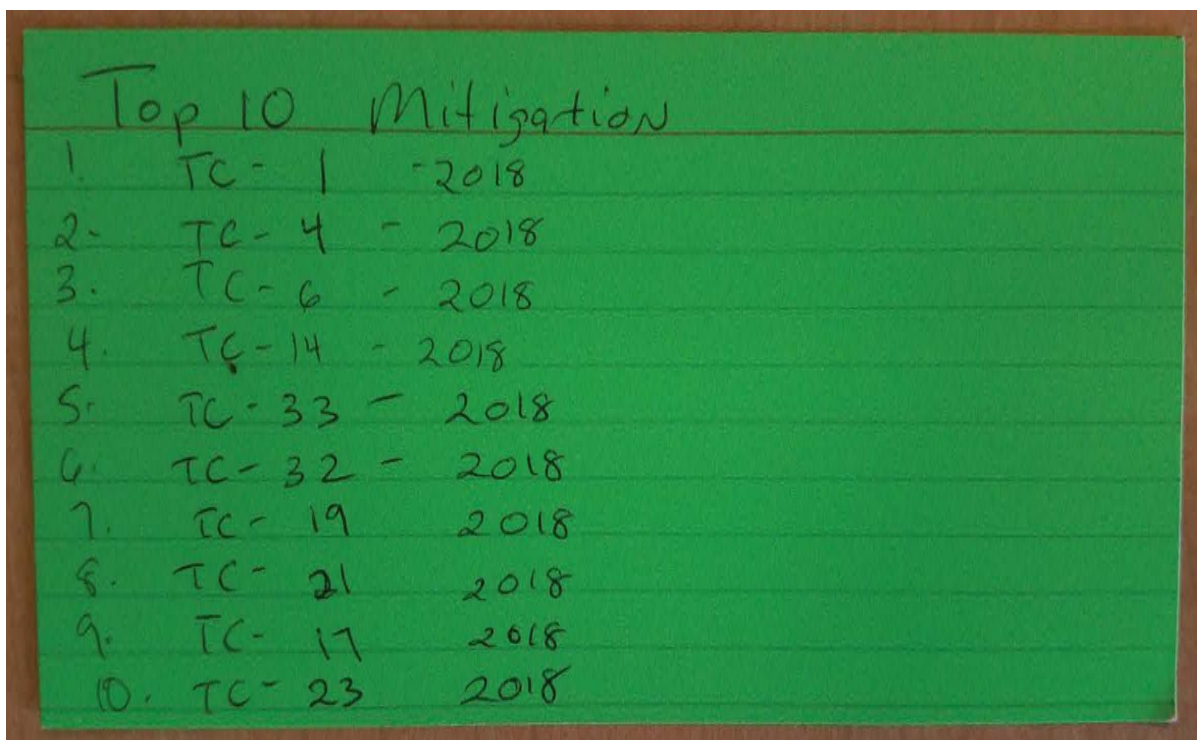 Top 10 Mitigation
1. TC - 1 - 2018
2. TC - 4 - 2018
3. TC - 6 - 2018
4. TC - 14 - 2018
5. TC - 33 - 2018
6. TC - 32 - 2018
7. TC - 19 2018
8. TC - 21 2018
9. TC - 17 2018
10. TC - 23 2018